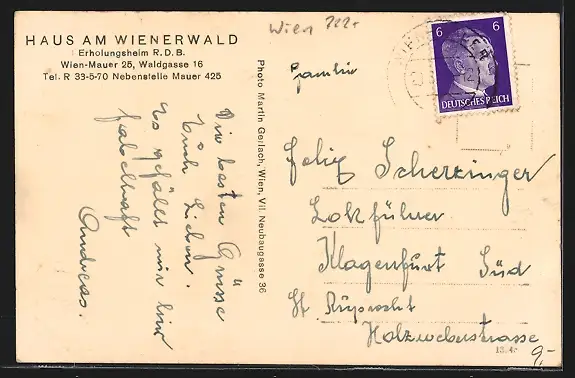 Wien
HAUS AM WIENERWALD
Erholungsheim R.D.B.
Wien-Mauer 25, Waldgasse 16
Tel. R 33-5-70 Nebenstelle Mauer 425
Die besten Grüsse
Euch Lieben.
Es gefällt mir hier
fabelhaft
Andreas.
Photo Martin Gerlach, Wien, VII. Neubaugasse 36
6 6
DEUTSCHES REICH
Familie
Felix Scherzinger
Lokführer
Klagenfurt Süd
St Ruprecht
Holzweberstrasse
9,-